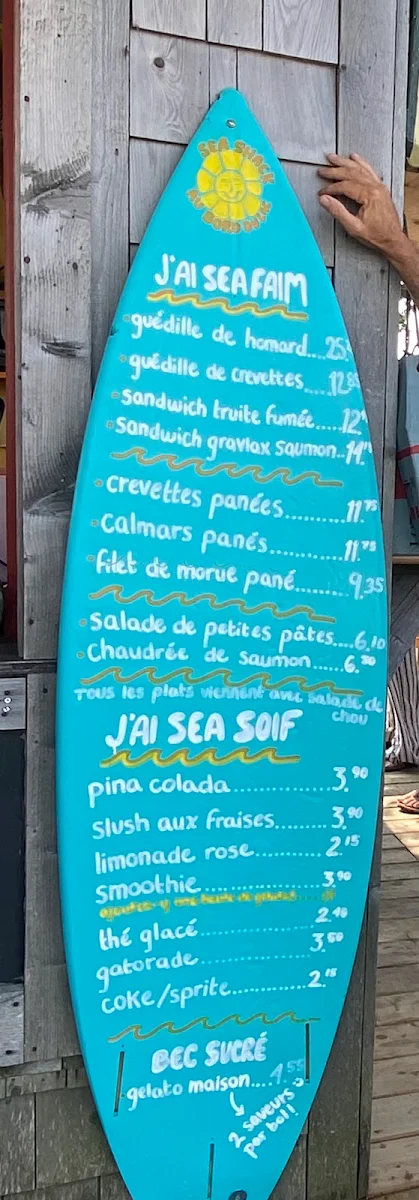 SEA SHACK
AU BORD DE L'EAU
J'AI SEA FAIM
guédille de homard....25
guédille de crevettes.....12.85
sandwich truite fumée.....12
sandwich gravlax saumon..14
crevettes panées..........11.75
calmars panés..............11.75
filet de morue pané........9.35
salade de petites pâtes....6.10
chaudrée de saumon......6
Tous les plats viennent avec salade de
chou
J'AI SEA SOIF
pina colada...............3.90
slush aux fraises........3.90
limonade rose............2.15
smoothie...................3.90
thé glacé..................2.40
gatorade..................3.50
coke/sprite.............2.15
BEC SUCRÉ
gelato maison....4.55
2 saveurs
par bol!